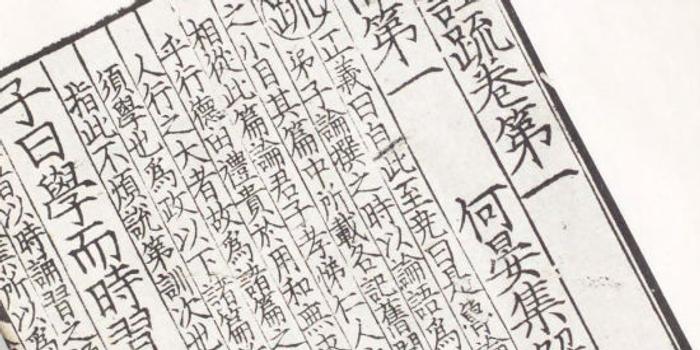 註疏卷第一
何晏集解
第一
疏
正義曰自此至堯曰是魯論
弟子論撰之時以論語為
之小目其篇中所載各記舊聞
相從此篇論君子孝悌仁人
乎行德由禮貴於用和無求
人行之大者故為諸篇之
須學也為政以下諸篇
指此不煩說第訓次也
子曰學而時習
者以時誦習之
所以為